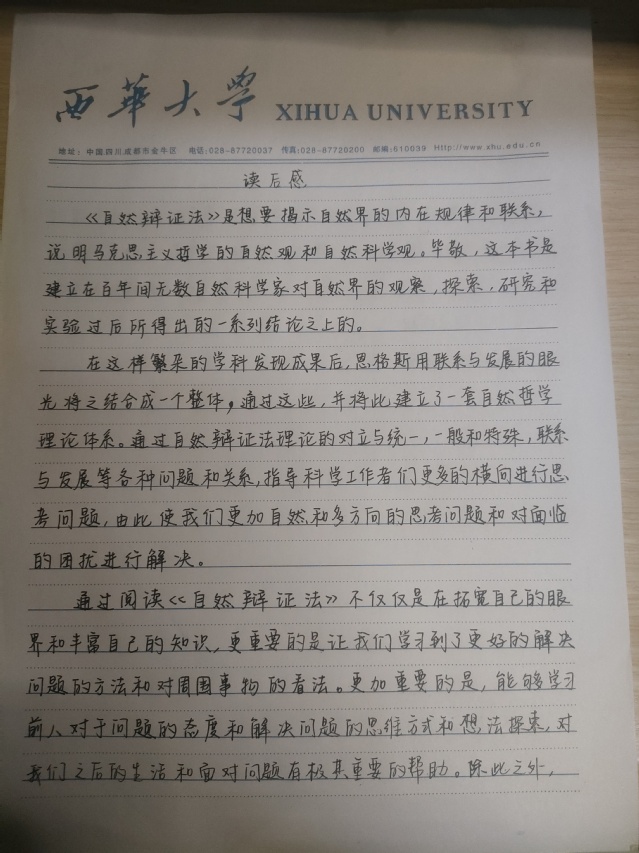 西華大学 XIHUA UNIVERSITY
地址：中国四川成都市金牛区 电话:028-87720037 传真:028-87720200 邮编:610039 Http://www.xhu.edu.cn
读后感
《自然辩证法》是想要揭示自然界的内在规律和联系，
说明马克思主义哲学的自然观和自然科学观。毕敬，这本书是
建立在百年间无数自然科学家对自然界的观察，探索，研究和
实验过后所得出的一系列结论之上的。
在这样繁杂的学科发现成果后，恩格斯用联系与发展的眼
光将之结合成一个整体，通过这些，并将此建立了一套自然哲学
理论体系。通过自然辩证法理论的对立与统一，一般和特殊，联系
与发展等各种问题和关系，指导科学工作者们更多的横向进行思
考问题，由此使我们更加自然和多方向的思考问题和对面临
的困扰进行解决。
通过阅读《自然辩证法》不仅仅是在拓宽自己的眼
界和丰富自己的知识，更重要的是让我们学习到了更好的解决
问题的方法和对周围事物的看法。更加重要的是，能够学习
前人对于问题的态度和解决问题的思维方式和想法探索，对
我们之后的生活和面对问题有极其重要的帮助。除此之外，